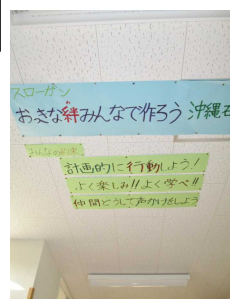 スローガン
おきな絆みんなで作ろう 沖縄
みんなの約束
計画的に行動しよう!
よく楽しみ!!よく学べ!!
仲間どうしで声かけをしよう